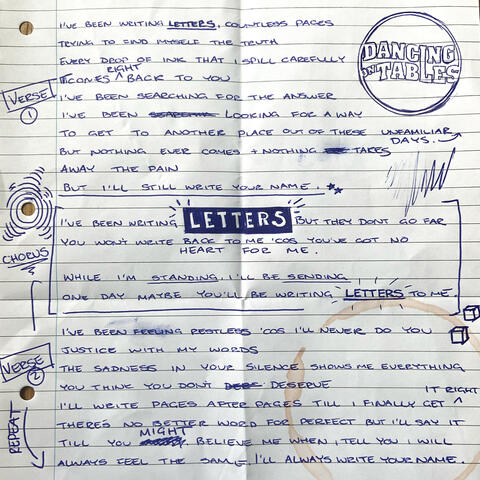 I'VE BEEN WRITING LETTERS, COUNTLESS PAGES
TRYING TO FIND MYSELF THE TRUTH
EVERY DROP OF INK THAT I SPILL CAREFULLY
COMES RIGHT BACK TO YOU
DANCING ON TABLES
VERSE 1
I'VE BEEN SEARCHING FOR THE ANSWER
I'VE BEEN LOOKING FOR A WAY
TO GET TO ANOTHER PLACE OUT OF THESE UNFAMILIAR DAYS.
BUT NOTHING EVER COMES + NOTHING TAKES
AWAY THE PAIN
BUT I'LL STILL WRITE YOUR NAME.
CHORUS
I'VE BEEN WRITING LETTERS BUT THEY DONT GO FAR
YOU WON'T WRITE BACK TO ME 'COS YOU'VE GOT NO
HEART FOR ME.
WHILE I'M STANDING, I'LL BE SENDING
ONE DAY MAYBE YOU'LL BE WRITING LETTERS TO ME
VERSE 2
I'VE BEEN FEELING RESTLESS 'COS I'LL NEVER DO YOU
JUSTICE WITH MY WORDS
THE SADNESS IN YOUR SILENCE SHOWS ME EVERYTHING
YOU THINK YOU DON'T DESERVE
I'LL WRITE PAGES AFTER PAGES TILL I FINALLY GET IT RIGHT
THERE'S NO BETTER WORD FOR PERFECT BUT I'LL SAY IT
TILL YOU MIGHT BELIEVE ME WHEN I TELL YOU I WILL
ALWAYS FEEL THE SAME. I'LL ALWAYS WRITE YOUR NAME.
REPEAT